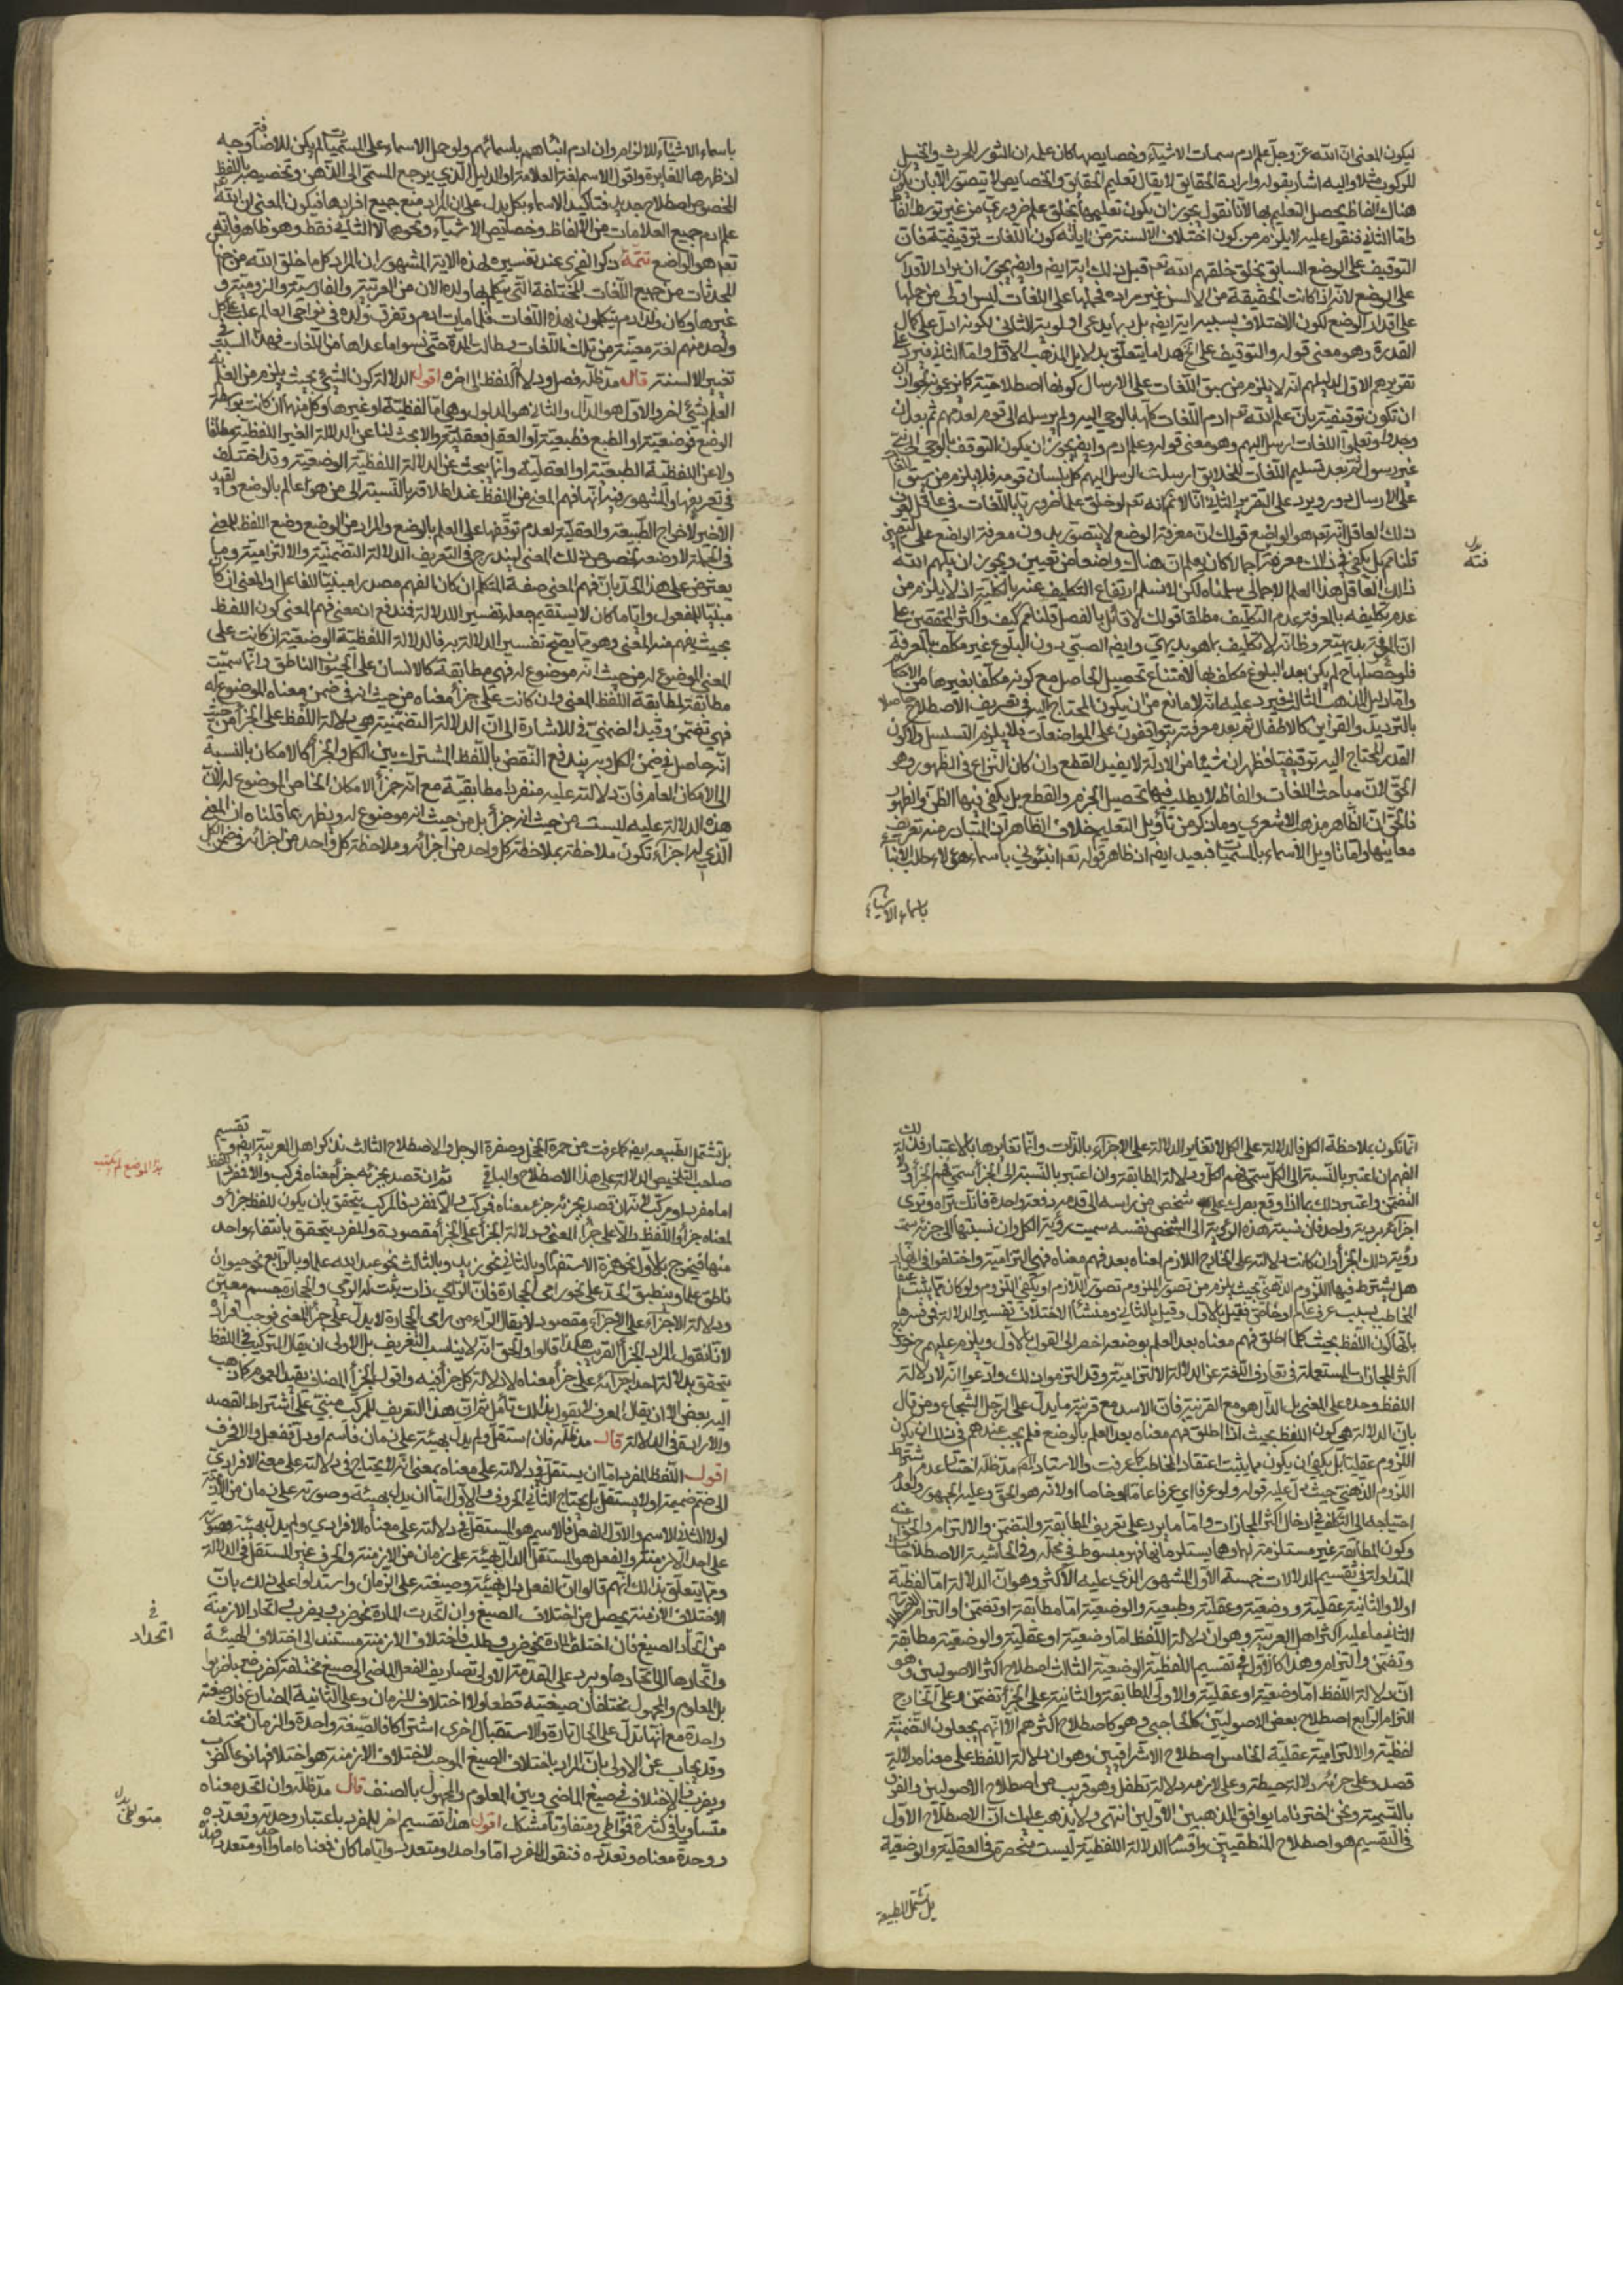 ليكون المعنى ان الله عز وجل علم ادم سمات الاشياء وخصايصها كان علم ان الثور للحرث والخيل
للركوب مثلا واليه اشار بقوله وارادة الحقايق لا يقال تعليم الحقايق والخصايص لا يتصور الا بان يكون
هناك الفاظ يحصل التعليم بها لانا نقول يجوز ان يكون تعليمها بخلق علم ضروري من غير توسط الفاظ
واما الثاني فنقول عليه لا يلزم من كون اختلاف الالسنة من اياته كون اللغات توقيفية فان
التوقيف على الوضع السابق بخلق خلقهم الله تعم قبل ذلك اية ايضم وايضم يجوز ان يراد الاقدار
على الوضع لانه اذا كانت الحقيقة من الالسن غير مرادة فحملها على اللغات ليس اولى من حملها
على اقدار الوضع لكون الاختلاف بسببه اية ايضم بل ربما يدعى اولوية الثاني لكونه ادل على كمال
القدرة وهو معنى قوله والتوقيف على الخ هذا ما يتعلق بدلايل المذهب الاول واما الثاني فيرد على
تقريرهم الاول لدليلهم انه لا يلزم من سبق اللغات على الارسال كونها اصطلاحية كما زعموه لجواز ان
ان تكون توقيفية بان علم الله تعم ادم اللغات كلها بالوحي اليه ولم يرسله الى قوم لعدمهم ثم بعد ان
وجدوا وتعلموا اللغات ارسل اليهم وهو معنى قوله وعلم ادم وايضم يجوز ان يكون التوقيف بالوحي الى نبي
غير رسول ثم بعد تسليم اللغات للخلايق ارسلت الرسل اليهم كل بلسان قومه فلا يلزم من سبق اللغات
على الارسال دور ويرد على التقرير الثاني انا لا نم انه تعم لو خلق علما ضروريا باللغات في عاقل لعرف
ذلك العاقل انه تعم هو الواضع قولك ان معرفة الوضع لا يتصور بدون معرفة الواضع على التعيين
قلنا نم بل يكفي في ذلك معرفته اجمالا كان يعلم ان هناك واضعا من تعيين ويجوز ان يلهم الله
ذلك العاقل هذا العلم الاجمالي سلمناه لكن لا نسلم ارتفاع التكليف عنه بالكلية اذ لا يلزم من
عدم تكليفه بالمعرفة عدم التكليف مطلقا قولك لا قائل بالفصل قلنا نم كيف واكثر المحققين على
ان المعرفة بديهية وظاهر لا تكليف بما هو بديهي وايضم الصبي دون البلوغ غير مكلف بالمعرفة
فلو حصلها ح لم يكن بعد البلوغ مكلفا بها لامتناع تحصيل الحاصل مع كونه مكلفا بغيرها من الاحكام
واما دليل المذهب الثالث فيرد عليه انه لا مانع من ان يكون المحتاج اليه في تعريف الاصطلاح حاصلا
بالترديد والقراين كالاطفال ثم بعد معرفته يتوافقون على المواضعات فلا يلزم التسلسل ولا كون
القدر المحتاج اليه توقيفيا فظهر ان شيئا من الادلة لا يفيد القطع وان كان النزاع في الظهور وهو
الحق لان مباحث اللغات والفاظ لا يطلب فيها تحصيل الجزم والقطع بل يكفي فيها الظن والظهور
فالحق ان الظاهر مذهب الاشعري وما ذكر من تأويل التعليم خلاف الظاهر ان المتبادر منه تعريف
معانيها واما تاويل الاسماء بالمسميات فبعيد ايضم ان ظاهر قوله تعم انبئوني باسماء هؤلاء طلب الانباء
باسماء الاشياء
باسماء الاشياء للالزام وان ادم انبأهم باسمائهم ولو حمل الاسماء على المسميات لم يكن للاضافة وجه
اذ ظهرها المغايرة واقول الاسم لغة العلامة والدليل الذي يرجع المسمى الى الذهن وتخصيصه باللفظ
المخصوص اصطلاح جديد فتأكيد الاسماء بكل يدل على ان المراد منع جميع افرادها فيكون المعنى ان الله تعم
علم ادم جميع العلامات من الالفاظ وخصايص الاشياء ونحوها لا الثاني فقط وهو ظاهر فالله
تعم هو الواضع تتمة ذكر الفخري عند تفسيره لهذه الاية المشهور ان المراد كل ما خلق الله من
المحدثات من جميع اللغات المختلفة التي يتكلم بها ولده الان من العربية والفارسية والرومية و
غيرها وكان ولد ادم يتكلمون بهذه اللغات فلما مات ادم وتفرق ولده في نواحي العالم غلب على كل
واحد منهم لغة معينة من تلك اللغات وطالت المدة حتى نسوا ما عداها من اللغات فهذا السبب في
تغيير الالسنة قال مد ظله فصل ودلالة اللفظ الى اخره اقول الدلالة كون الشيء بحيث يلزم من العلم به
العلم بشيء اخر والاول هو الدال والثاني هو المدلول وهي اما لفظية او غيرها وكل منهما ان كانت بتوسط
الوضع فوضعية او الطبع فطبيعية او العقل فعقلية ولا بحث لنا عن الدلالة الغير اللفظية مطلقا
ولا عن اللفظية الطبيعية او العقلية وانما يبحث عن الدلالة اللفظية الوضعية وقد اختلف
في تعريفها والمشهور فيه انها فهم المعنى من اللفظ عند اطلاقه بالنسبة الى من هو عالم بالوضع والقيد
الاخير لاخراج الطبيعية والعقلية لعدم توقفها على العلم بالوضع والمراد من الوضع وضع اللفظ للمعنى
في الجملة لا وضعه لخصوص ذلك المعنى ليندرج في التعريف الدلالة التضمنية والالتزامية وربما
يعترض على هذا الحد بان فهم المعنى صفة المتكلم ان كان الفهم مصدرا مبنيا للفاعل او المعنى ان كان
مبنيا للمفعول واياما كان لا يستقيم جعله تفسير الدلالة فيندفع ان معنى فهم المعنى كون اللفظ
بحيث يفهم منه المعنى وهو مما يصح تفسير الدلالة به فالدلالة اللفظية الوضعية ان كانت على
المعنى الموضوع له من حيث انه موضوع له فهي مطابقة كالانسان على الحيوان الناطق وانما سميت
مطابقة لمطابقة اللفظ المعنى وان كانت على جزأ معناه من حيث انه في ضمن معناه الموضوع له
فهي تضمن وقيد الضمني في للاشارة الى ان الدلالة التضمنية هي دلالة اللفظ على الجزأ من حيث
انه حاصل في ضمن الكل وبه يندفع النقض باللفظ المشترك بين الكل والجزأ كالامكان بالنسبة
الى الامكان العام فان دلالته عليه منفردا مطابقية مع انه جزأ الامكان الخاص الموضوع له لان
هذه الدلالة عليه ليست من حيث انه جزأ بل من حيث انه موضوع له ويظهر بما قلناه ان المعنى
الذي له اجزاء تكون ملاحظته بملاحظة كل واحد من اجزائه وملاحظة كل واحد من اجزائه في ضمن الكل
انما تكون بملاحظة الكل فالدلالة على الكل لا تغاير الدلالة على الاجزاء بالذات وانما تغايرها بالاعتبار فذلك
الفهم ان اعتبر بالنسبة الى الكل سمي فهم الكل ودلالة المطابقة وان اعتبر بالنسبة الى الجزأ سمي فهم الجزأ ودلالة
التضمن واعتبر ذلك بما اذا وقع بصرك على شخص من راسه الى قدمه دفعة واحدة فانك تراه وترى
اجزاءه برؤية واحدة فان نسبة هذه الرؤية الى الشخص نفسه سميت رؤية الكل وان نسبتها الى جزئه سميت
رؤية ذلك الجزأ وان كانت دلالته على الخارج اللازم لمعناه بعد فهم معناه فهي التزامية واختلفوا في انه
هل يشترط فيها اللزوم الذهني بحيث يلزم من تصور الملزوم تصور اللازم او يكفي اللزوم ولو كان مما يثبت اعتقاد
المخاطب بسبب عرف عام او خاص فقيل بالاول وقيل بالثاني ومنشأ الاختلاف تفسير الدلالة فمن فسرها
بانها كون اللفظ بحيث كلما اطلق فهم معناه بعد العلم بوضعه اخصر الى القول بالاول ويلزم عليهم خروج
اكثر المجازات المستعملة في تعارف اللغة عن الدلالة الالتزامية وقد التزموا ذلك وادعوا انه لا دلالة
اللفظ وحده على المعنى بل الدال هو مع القرينة فان الاسد مع قرينة ما يدل على الرجل الشجاع ومن قال
بان الدلالة هي كون اللفظ بحيث اذا اطلق فهم معناه بعد العلم بالوضع فلم يجب عندهم في ذلك ان يكون
اللزوم عقليا بل يكفي ان يكون مما يثبت اعتقاد المخاطب كما عرفت والاستاد دام مد ظله اختار عدم شرط
اللزوم الذهني حيث دل عليه قوله ولو عرفا اي عرفا عاما او خاصا اولا انه هو الحق وعليه الجمهور ولعدم
احتياجه الى التكلف في ادخال اكثر المجازات واما ما يرد على تعريف المطابقة والتضمن والالتزام والجواب عنه
وكون المطابقة غير مستلزمة لهما وهما يستلزمانها فهو مبسوط في محله وفي الحاشية الاصطلاحات
المتداولة في تقسيم الدلالات خمسة الاول المشهور الذي عليه الاكثر وهو ان الدلالة اما لفظية
اولا والثانية عقلية ووضعية وعقلية وطبعية والوضعية اما مطابقة او تضمن او التزام الاصطلاح
الثاني ما عليه اكثر اهل العربية وهو ان دلالة اللفظ اما وضعية او عقلية والوضعية مطابقة
وتضمن والتزام وهذا كالاول في تقسيم اللفظية الوضعية الثالث اصطلاح اكثر الاصوليين وهو
ان دلالة اللفظ اما وضعية او عقلية والاولى المطابقة والثانية على الجزأ تضمن وعلى الخارج
التزام الرابع اصطلاح بعض الاصوليين كالحاجبي وهو كاصطلاح اكثرهم الا انهم يجعلون التضمنية
لفظية والالتزامية عقلية الخامس اصطلاح الاشراقيين وهو ان دلالة اللفظ على معناه دلالة
قصد وعلى جزئه دلالة حيطة وعلى لازمه دلالة تطفل وهو قريب من اصطلاح الاصوليين والفرق
بالتسمية ونحن اخترنا ما يوافق المذهبين الاولين انتهى ولا يذهب عليك ان الاصطلاح الاول
في التقسيم هو اصطلاح المنطقيين واقسام الدلالة اللفظية ليست منحصرة في العقلية والوضعية
بل تشتمل الطبيعة
بل تشتمل الطبيعية ايضم كما عرفت من حمرة الخجل وصفرة الوجل والاصطلاح الثالث نذكر اهل العربية ايضم وتقسيم
صاحب التلخيص الدلالة على هذا الاصطلاح والباقي ثم ان قصد بجزئه جزأ معناه فمركب والا فمفرد اللفظ
اما مفرد او مركب لانه ان قصد بجزئه جزء معناه فمركب والا فمفرد فالمركب يتحقق بان يكون للفظ جزأ و
لمعناه جزأ واللفظ دالا على جزأ المعنى ودلالة الجزأ على الجزأ مقصودة والمفرد يتحقق بانتفاء واحد
منها فيخرج بالاول نحو همزة الاستفهام وبالثاني نحو زيد وبالثالث نحو عبد الله علما وبالرابع نحو حيوان
ناطق علما وينطبق الحد على نحو رامي الحجارة فان الرامي ذات يثبت له الرمي والحجارة جسم معين
ودلالة الاجزاء على الاجزاء مقصودة لا يقال الراء من رامي الحجارة لا يدل على جزأ المعنى فوجب افراده
لانا نقول المراد الجزأ القريب هكذا قالوا والحق انه لا يناسب التعريف بل الاولى ان يقال التركيب في اللفظ
يتحقق بدلالة احد اجزائه على جزأ معناه لا دلالة كل جزأ فيه واقول الجزأ المضاف يفيد العموم كما ذهب
اليه بعض الا ان يقال المعرف لا يقول بذلك تأمل ثم ان هذا التعريف للمركب مبني على اشتراط القصد
والارادة في الدلالة قال مد ظله فان استقل ولم يدل بهيئته على زمان فاسم او دل ففعل والا فحرف
اقول اللفظ المفرد اما ان يستقل في دلالته على معناه بمعنى انه لا يحتاج في دلالته على معناه الافرادي
الى ضم ضميمة اولا يستقل بل يحتاج الثاني الحروف والاول اما ان يدل بهيئته وصورته على زمان من الازمنة
اولا الثاني الاسم والاول الفعل فالاسم هو المستقل في دلالته على معناه الافرادي ولم يدل بهيئته وصورته
على احد الازمنة والفعل هو المستقل الدال بهيئته على زمان من الازمنة والحرف غير المستقل في الدلالة
ومما يتعلق بذلك انهم قالوا ان الفعل يدل بهيئته وصيغته على الزمان واستدلوا على ذلك بان
الاختلاف الازمنة يحصل من اختلاف الصيغ وان اتحدت المادة نحو ضرب ويضرب واتحاد الازمنة
من اتحاد الصيغ فان اختلف المادة نحو ضرب وطلب فاختلاف الازمنة مستند الى اختلاف الهيئة
واتحادها الى اتحادها ويرد على المقدمة الاولى تصاريف الفعل الماضي الى صيغ مختلفة كضرب ضربا ضربوا
بل المعلوم والمجهول مختلفان صيغته قطعا ولا اختلاف للزمان وعلى الثانية المضارع فان صيغته
واحدة مع انها تدل على الحال تارة والاستقبال اخرى اشتراكا فالصيغة واحدة والزمان مختلف
وقد يجاب عن الاولى بان المراد باختلاف الصيغ الموجب لاختلاف الازمنة هو اختلافها نوعا كضرب
ويضرب والاختلاف في صيغ الماضي وبين المعلوم والمجهول بالصنف قال مد ظله وان اتحد معناه
متساويا في كثرة فمتواطي ومتفاوتا مشكك اقول هذا تقسيم اخر للمفرد باعتبار وحدته وتعدده
ووحدة معناه وتعدده فنقول المفرد اما واحد او متعدد واياما كان فمعناه اما واحد او متعدد
هذا الموضع لم يكتب
في
اتحاد
متواطي